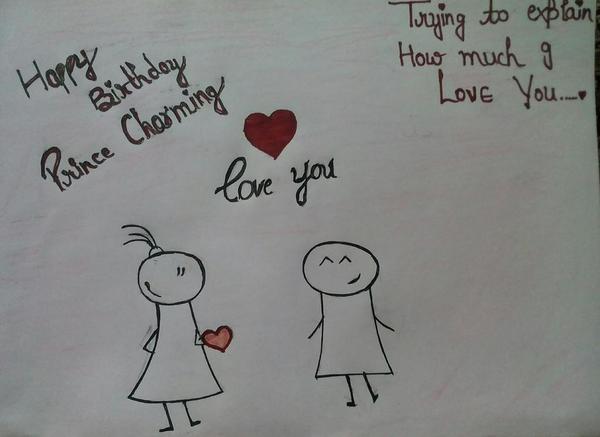 Happy
Birthday
Prince Charming
Love you
Trying to explain
How much I
Love You....